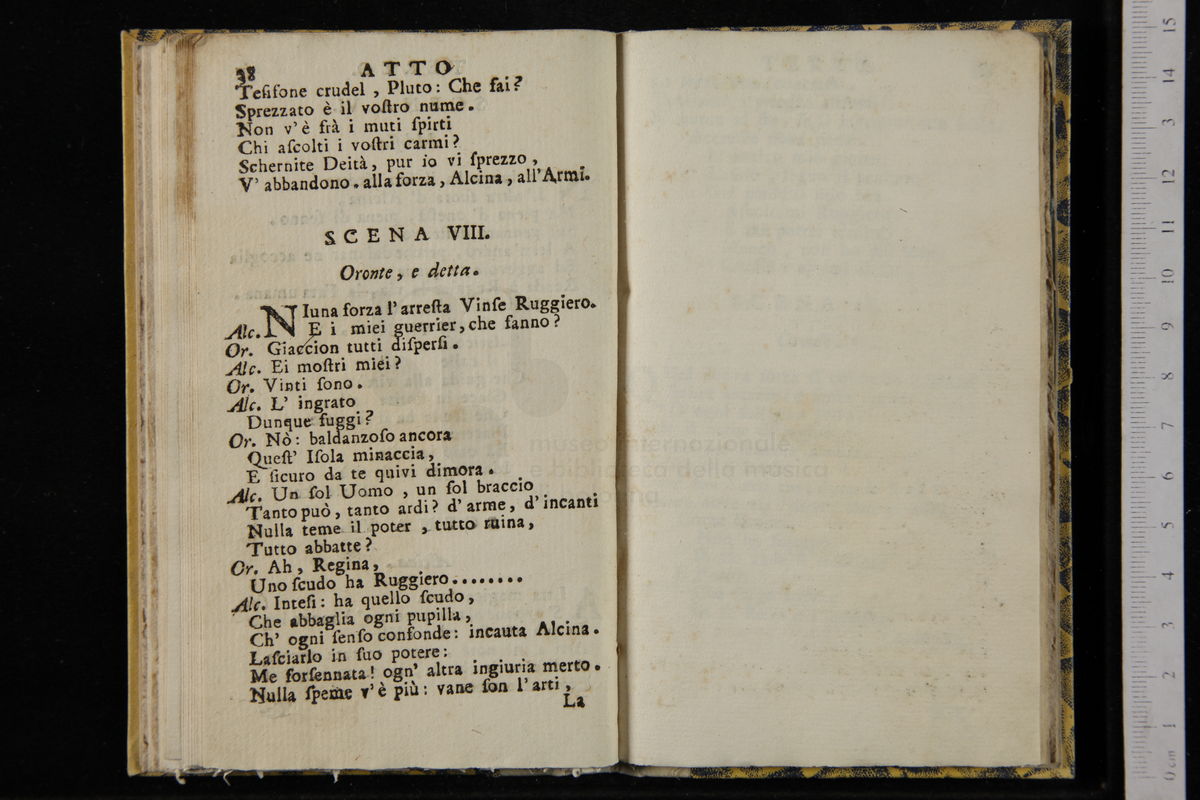 38 ATTO
Tesifone crudel , Pluto : Che fai ?
Sprezzato è il voſtro nume .
Non v' è frà i muti ſpirti
Chi aſcolti i voſtri carmi ?
Schernite Deità , pur io vi ſprezzo ,
V' abbandono . alla forza , Alcina , all' Armi .
SCENA VIII.
Oronte , e detta .
NIuna forza l' arreſta Vinſe Ruggiero .
Alc. E i miei guerrier , che fanno ?
Or. Giaccion tutti diſperſi .
Alc. Ei moſtri miei ?
Or. Vinti ſono .
Alc. L' ingrato
Dunque fuggi ?
Or. Nò : baldanzoſo ancora
Queſt' Iſola minaccia ,
E ſicuro da te quivi dimora .
Alc. Un ſol Uomo , un ſol braccio
Tanto può , tanto ardi ? d' arme , d' incanti
Nulla teme il poter , tutto ruina ,
Tutto abbatte ?
Or. Ah , Regina ,
Uno ſcudo ha Ruggiero ........
Alc. Inteſi : ha quello ſcudo ,
Che abbaglia ogni pupilla ,
Ch' ogni ſenſo confonde : incauta Alcina .
Laſciarlo in ſuo potere :
Me forſennata ! ogn' altra ingiuria merto .
Nulla ſpeme v' è più : vane ſon l' arti ,
La
museo internazionale
e biblioteca della musica
15
14
13
12
11
10
9
8
7
6
5
4
3
2
1
0 cm